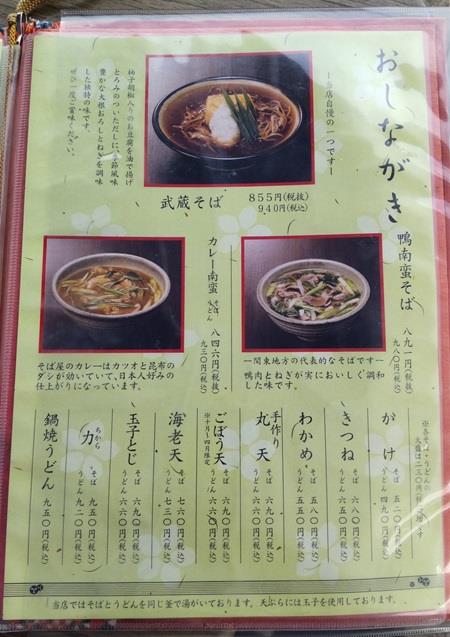 おしながき
―当店自慢の一つです―
柚子胡椒入りのお豆腐を油で揚げ
とろみのついただしに、季節風味
豊かな大根おろしとねぎを調味
した独特の味です。
ぜひ一度ご賞味ください。
武蔵そば 855円(税抜)
940円(税込)
鴨南蛮そば 八九一円(税抜)
九八〇円(税込)
―関東地方の代表的なそばです―
鴨肉とねぎが実においしく調和
した味です。
カレー南蛮 そば うどん 八四六円(税抜)
九三〇円(税込)
そば屋のカレーはカツオと昆布の
ダシが効いていて、日本人好みの
仕上がりになっています。
※各そば・うどんの
大盛は二三〇円(税込)増です
かけ そば 五二〇円(税込)
うどん 四九〇円(税込)
きつね そば 六八〇円(税込)
うどん 六五〇円(税込)
わかめ そば
うどん 五五〇円(税込)
手作り
丸天 そば 六九〇円(税込)
うどん 六六〇円(税込)
ごぼう天 そば 六九〇円(税込)
※十月〜四月限定 うどん 六六〇円(税込)
海老天 そば 七六〇円(税込)
うどん 七三〇円(税込)
玉子とじ そば 六九〇円(税込)
うどん 六六〇円(税込)
ちから
力 そば 九五〇円(税込)
うどん 九二〇円(税込)
鍋焼うどん 九五〇円(税込)
当店ではそばとうどんを同じ釜で湯がいております。天ぷらには玉子を使用しております。